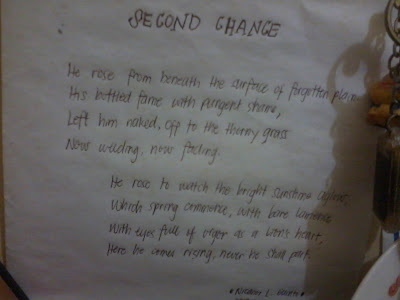 SECOND CHANGE
He rose from beneath the surface of forgotten plain
His bottled fame with pungent shame,
Left him naked, off to the thorny grass
Now wilding, now fading.
He rose to watch the bright sunshine
Which spring commence, with bare
With eyes full of vigor as a lion's heart,
Here he comes rising, never he shall part.